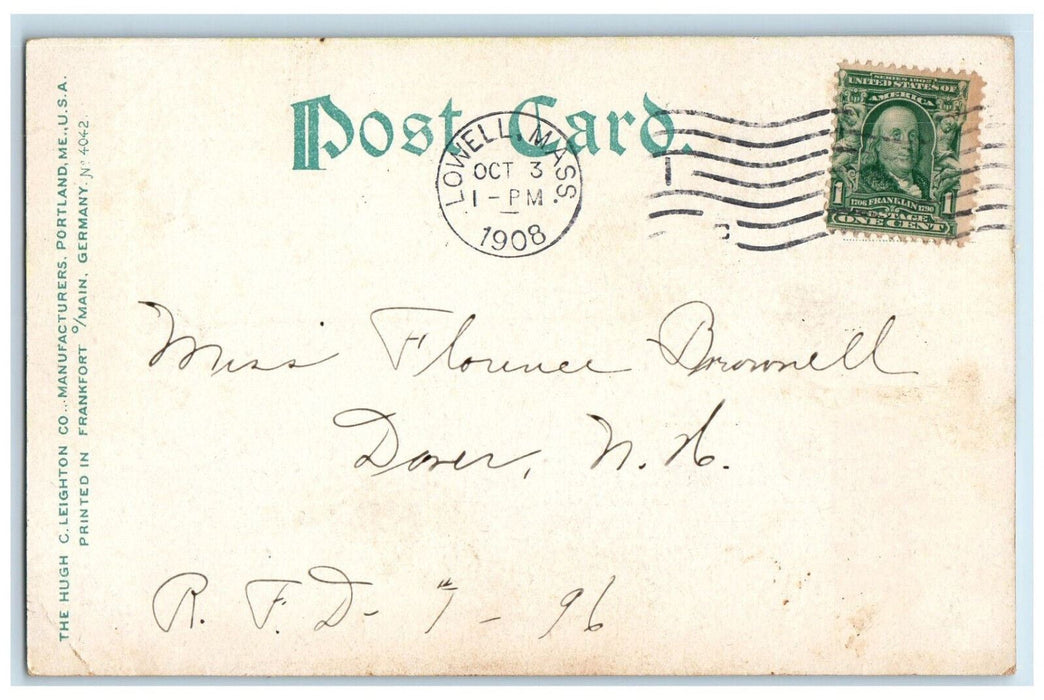 Post Card.
LOWELL, MASS.
OCT 3
1 - PM
1908
SERIES 1902
UNITED STATES OF
AMERICA
1706 FRANKLIN 1790
1 POSTAGE 1
ONE CENT
THE HUGH C. LEIGHTON CO., MANUFACTURERS, PORTLAND, ME., U.S.A.
PRINTED IN FRANKFORT o/MAIN, GERMANY. No 4042.
Miss Florence Brownell
Dover, N. H.
R. F. D - - 96